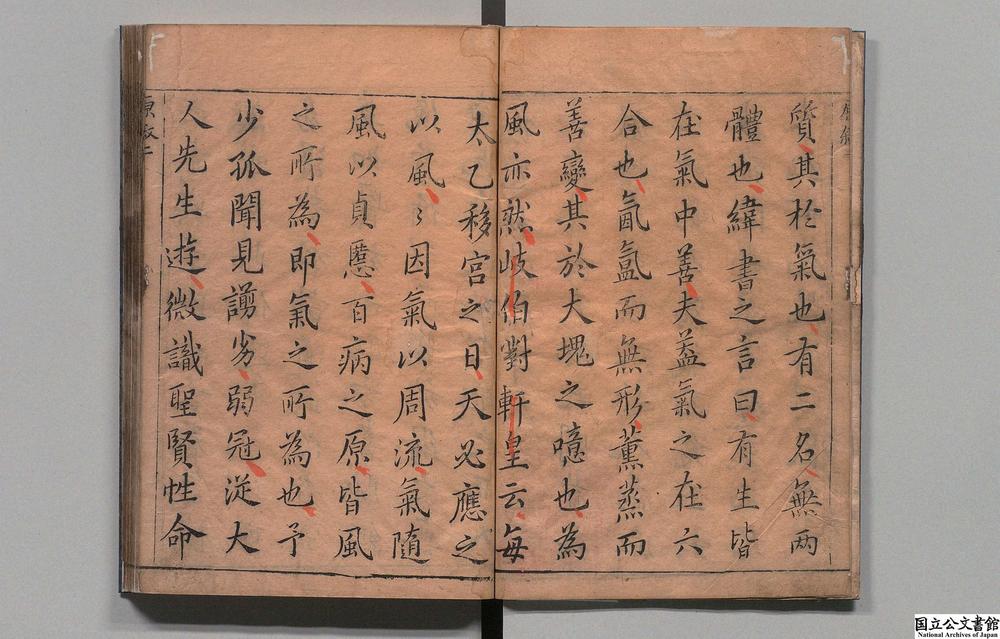 質其扵氣也有二名無两
體也緯書之言曰有生皆
在氣中善夫葢氣之在六
合也氤氲而無形薰蒸而
善變其於大塊之噫也為
風亦然岐伯對軒皇云每
太乙移宮之日天必應之
以風〻因氣以周流氣隨
風以貞慝百病之原皆風
之所為即氣之所為也予
少孤聞見謭劣弱冠從大
人先生遊微識聖賢性命
国立公文書館
National Archives of Japan